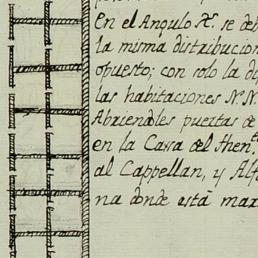 En el Angulo Pᵗ. se deb
la misma distribucion
opuesto; con solo la di
las habitaciones N. N.
Abriendoles puertas de
en la Casa del Thenᵗᵉ
al Cappellan, y Alf
na donde està mar